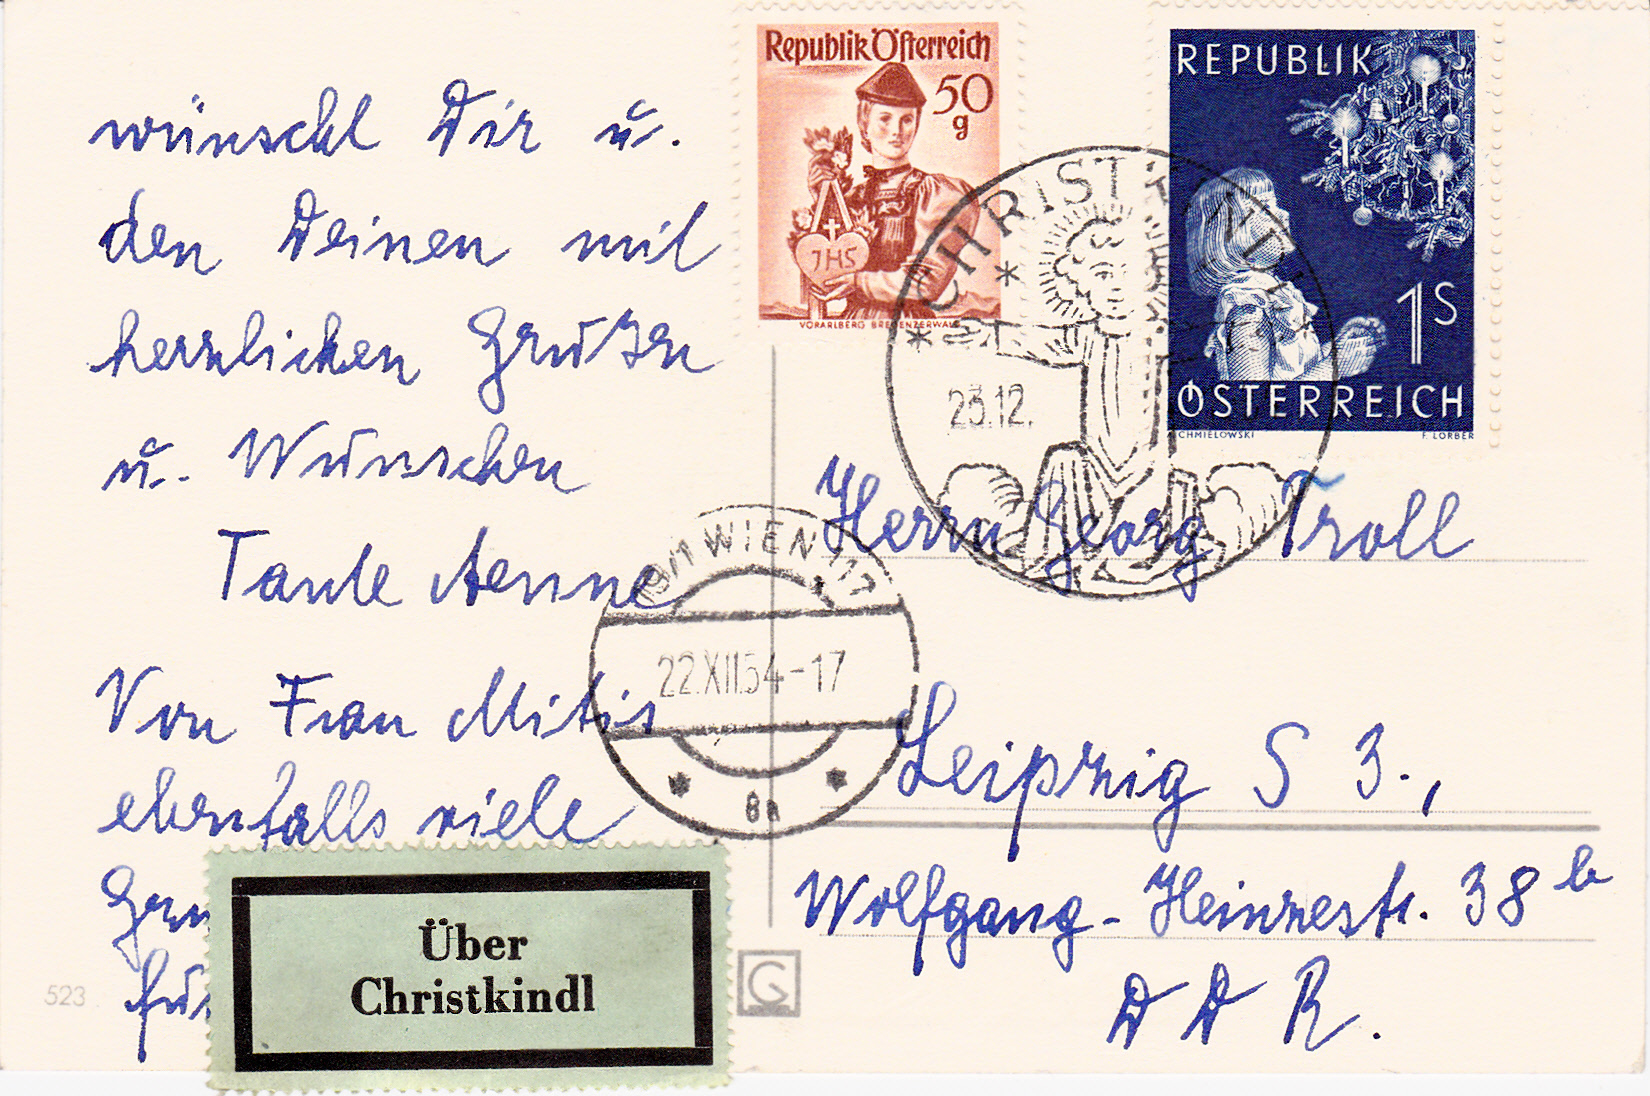 wünscht Dir u.
den Deinen mit
herzlichen Grüßen
u. Wünschen
Tante Aenne
Von Frau Mitis
ebenfalls viele
für
Über
Christkindl
523
Republik Österreich
50
g
JHS
VORARLBERG BREGENZERWALD
REPUBLIK
1S
ÖSTERREICH
CHMIELOWSKI
F. LORBER
CHRISTKINDL
23.12.
WIEN 117
22.XII.54-17
8a
Herrn Georg Troll
Leipzig S 3.,
Wolfgang-Heinzestr. 38 b
D D R.
G